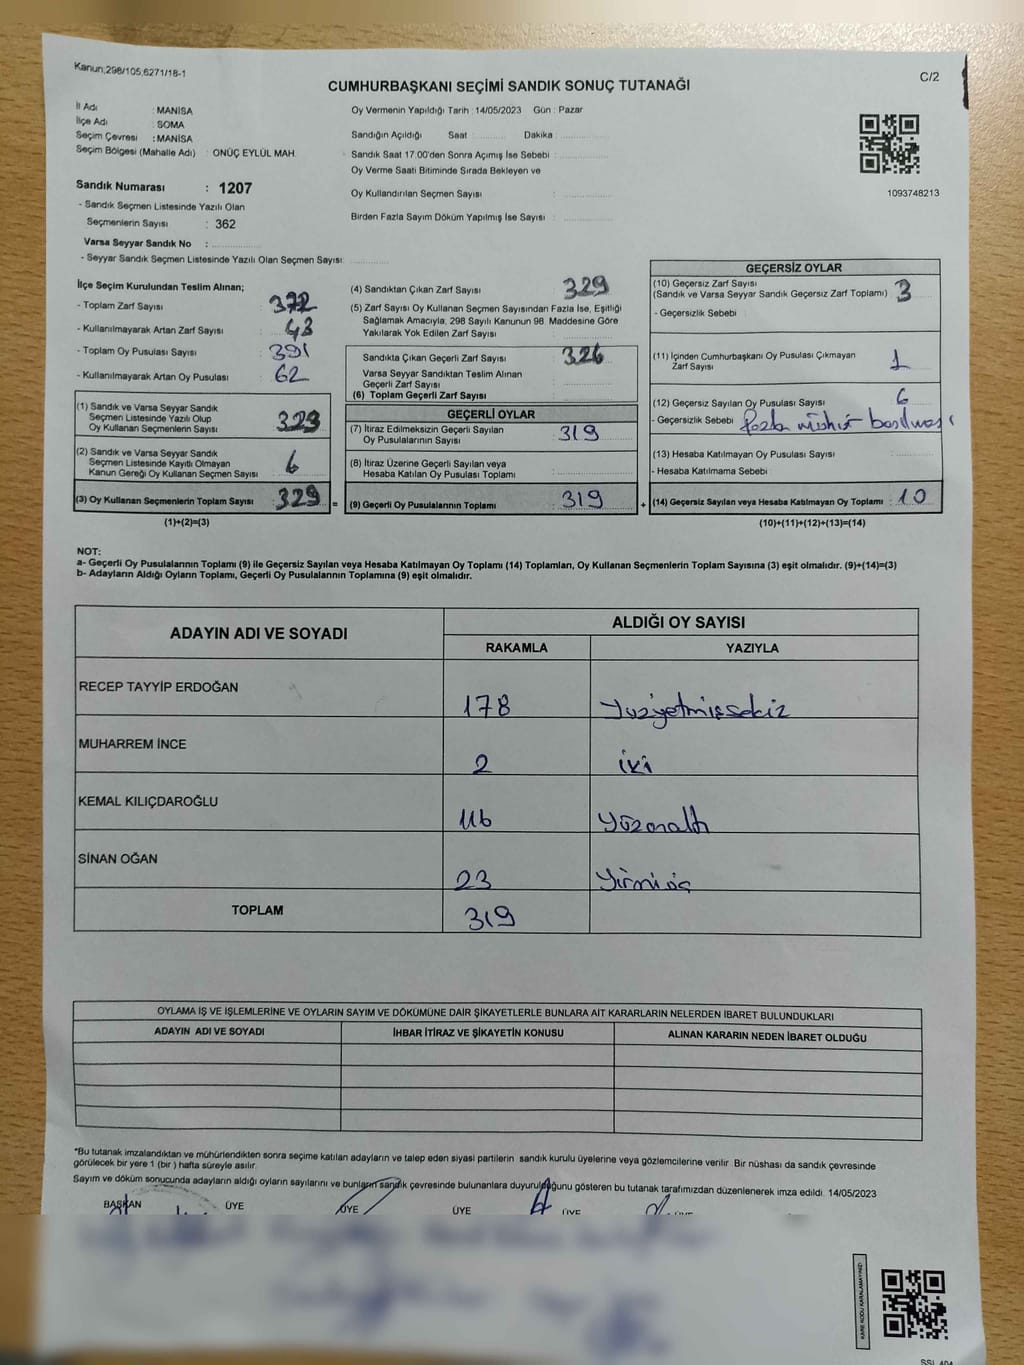 Kanun;298/105,6271/18-1
C/2
CUMHURBAŞKANI SEÇİMİ SANDIK SONUÇ TUTANAĞI
İl Adı : MANİSA
İlçe Adı : SOMA
Seçim Çevresi : MANİSA
Seçim Bölgesi (Mahalle Adı) : ONÜÇ EYLÜL MAH.
Sandık Numarası : 1207
- Sandık Seçmen Listesinde Yazılı Olan
Seçmenlerin Sayısı : 362
Varsa Seyyar Sandık No :
- Seyyar Sandık Seçmen Listesinde Yazılı Olan Seçmen Sayısı:
Oy Vermenin Yapıldığı Tarih : 14/05/2023 Gün : Pazar
Sandığın Açıldığı Saat Dakika :
Sandık Saat 17:00'den Sonra Açımış İse Sebebi :
Oy Verme Saati Bitiminde Sırada Bekleyen ve
Oy Kullandırılan Seçmen Sayısı :
Birden Fazla Sayım Döküm Yapılmış İse Sayısı :
1093748213
İlçe Seçim Kurulundan Teslim Alınan;
- Toplam Zarf Sayısı : 372
- Kullanılmayarak Artan Zarf Sayısı : 43
- Toplam Oy Pusulası Sayısı : 391
- Kullanılmayarak Artan Oy Pusulası : 62
(1) Sandık ve Varsa Seyyar Sandık
Seçmen Listesinde Yazılı Olup
Oy Kullanan Seçmenlerin Sayısı : 323
(2) Sandık ve Varsa Seyyar Sandık
Seçmen Listesinde Kayıtlı Olmayan
Kanun Gereği Oy Kullanan Seçmen Sayısı : 6
(3) Oy Kullanan Seçmenlerin Toplam Sayısı : 329 =
(1)+(2)=(3)
(4) Sandıktan Çıkan Zarf Sayısı : 329
(5) Zarf Sayısı Oy Kullanan Seçmen Sayısından Fazla İse, Eşitliği
Sağlamak Amacıyla, 298 Sayılı Kanunun 98. Maddesine Göre
Yakılarak Yok Edilen Zarf Sayısı :
Sandıkta Çıkan Geçerli Zarf Sayısı : 326
Varsa Seyyar Sandıktan Teslim Alınan
Geçerli Zarf Sayısı :
(6) Toplam Geçerli Zarf Sayısı :
GEÇERLİ OYLAR
(7) İtiraz Edilmeksizin Geçerli Sayılan
Oy Pusulalarının Sayısı : 319
(8) İtiraz Üzerine Geçerli Sayılan veya
Hesaba Katılan Oy Pusulası Toplamı :
(9) Geçerli Oy Pusulalarının Toplamı : 319 +
GEÇERSİZ OYLAR
(10) Geçersiz Zarf Sayısı
(Sandık ve Varsa Seyyar Sandık Geçersiz Zarf Toplamı) : 3
- Geçersizlik Sebebi :
(11) İçinden Cumhurbaşkanı Oy Pusulası Çıkmayan
Zarf Sayısı : 1
(12) Geçersiz Sayılan Oy Pusulası Sayısı : 6
- Geçersizlik Sebebi : Fazla mühür basılması
(13) Hesaba Katılmayan Oy Pusulası Sayısı :
- Hesaba Katılmama Sebebi :
(14) Geçersiz Sayılan veya Hesaba Katılmayan Oy Toplamı : 10
(10)+(11)+(12)+(13)=(14)
NOT:
a- Geçerli Oy Pusulalarının Toplamı (9) ile Geçersiz Sayılan veya Hesaba Katılmayan Oy Toplamı (14) Toplamları, Oy Kullanan Seçmenlerin Toplam Sayısına (3) eşit olmalıdır. (9)+(14)=(3)
b- Adayların Aldığı Oyların Toplamı, Geçerli Oy Pusulalarının Toplamına (9) eşit olmalıdır.
ADAYIN ADI VE SOYADI
ALDIĞI OY SAYISI
RAKAMLA YAZIYLA
RECEP TAYYİP ERDOĞAN 178 Yüzyetmişsekiz
MUHARREM İNCE 2 iki
KEMAL KILIÇDAROĞLU 116 Yüzonaltı
SİNAN OĞAN 23 Yirmiüç
TOPLAM 319
OYLAMA İŞ VE İŞLEMLERİNE VE OYLARIN SAYIM VE DÖKÜMÜNE DAİR ŞİKAYETLERLE BUNLARA AİT KARARLARIN NELERDEN İBARET BULUNDUKLARI
ADAYIN ADI VE SOYADI İHBAR İTİRAZ VE ŞİKAYETİN KONUSU ALINAN KARARIN NEDEN İBARET OLDUĞU
*Bu tutanak imzalandıktan ve mühürlendikten sonra seçime katılan adayların ve talep eden siyasi partilerin sandık kurulu üyelerine veya gözlemcilerine verilir. Bir nüshası da sandık çevresinde
görülecek bir yere 1 (bir ) hafta süreyle asılır.
Sayım ve döküm sonucunda adayların aldığı oyların sayılarını ve bunların sandık çevresinde bulunanlara duyurulduğunu gösteren bu tutanak tarafımızdan düzenlenerek imza edildi. 14/05/2023
BAŞKAN ÜYE ÜYE ÜYE ÜYE ÜYE
KARE KODU KARALAMAYINIZ!